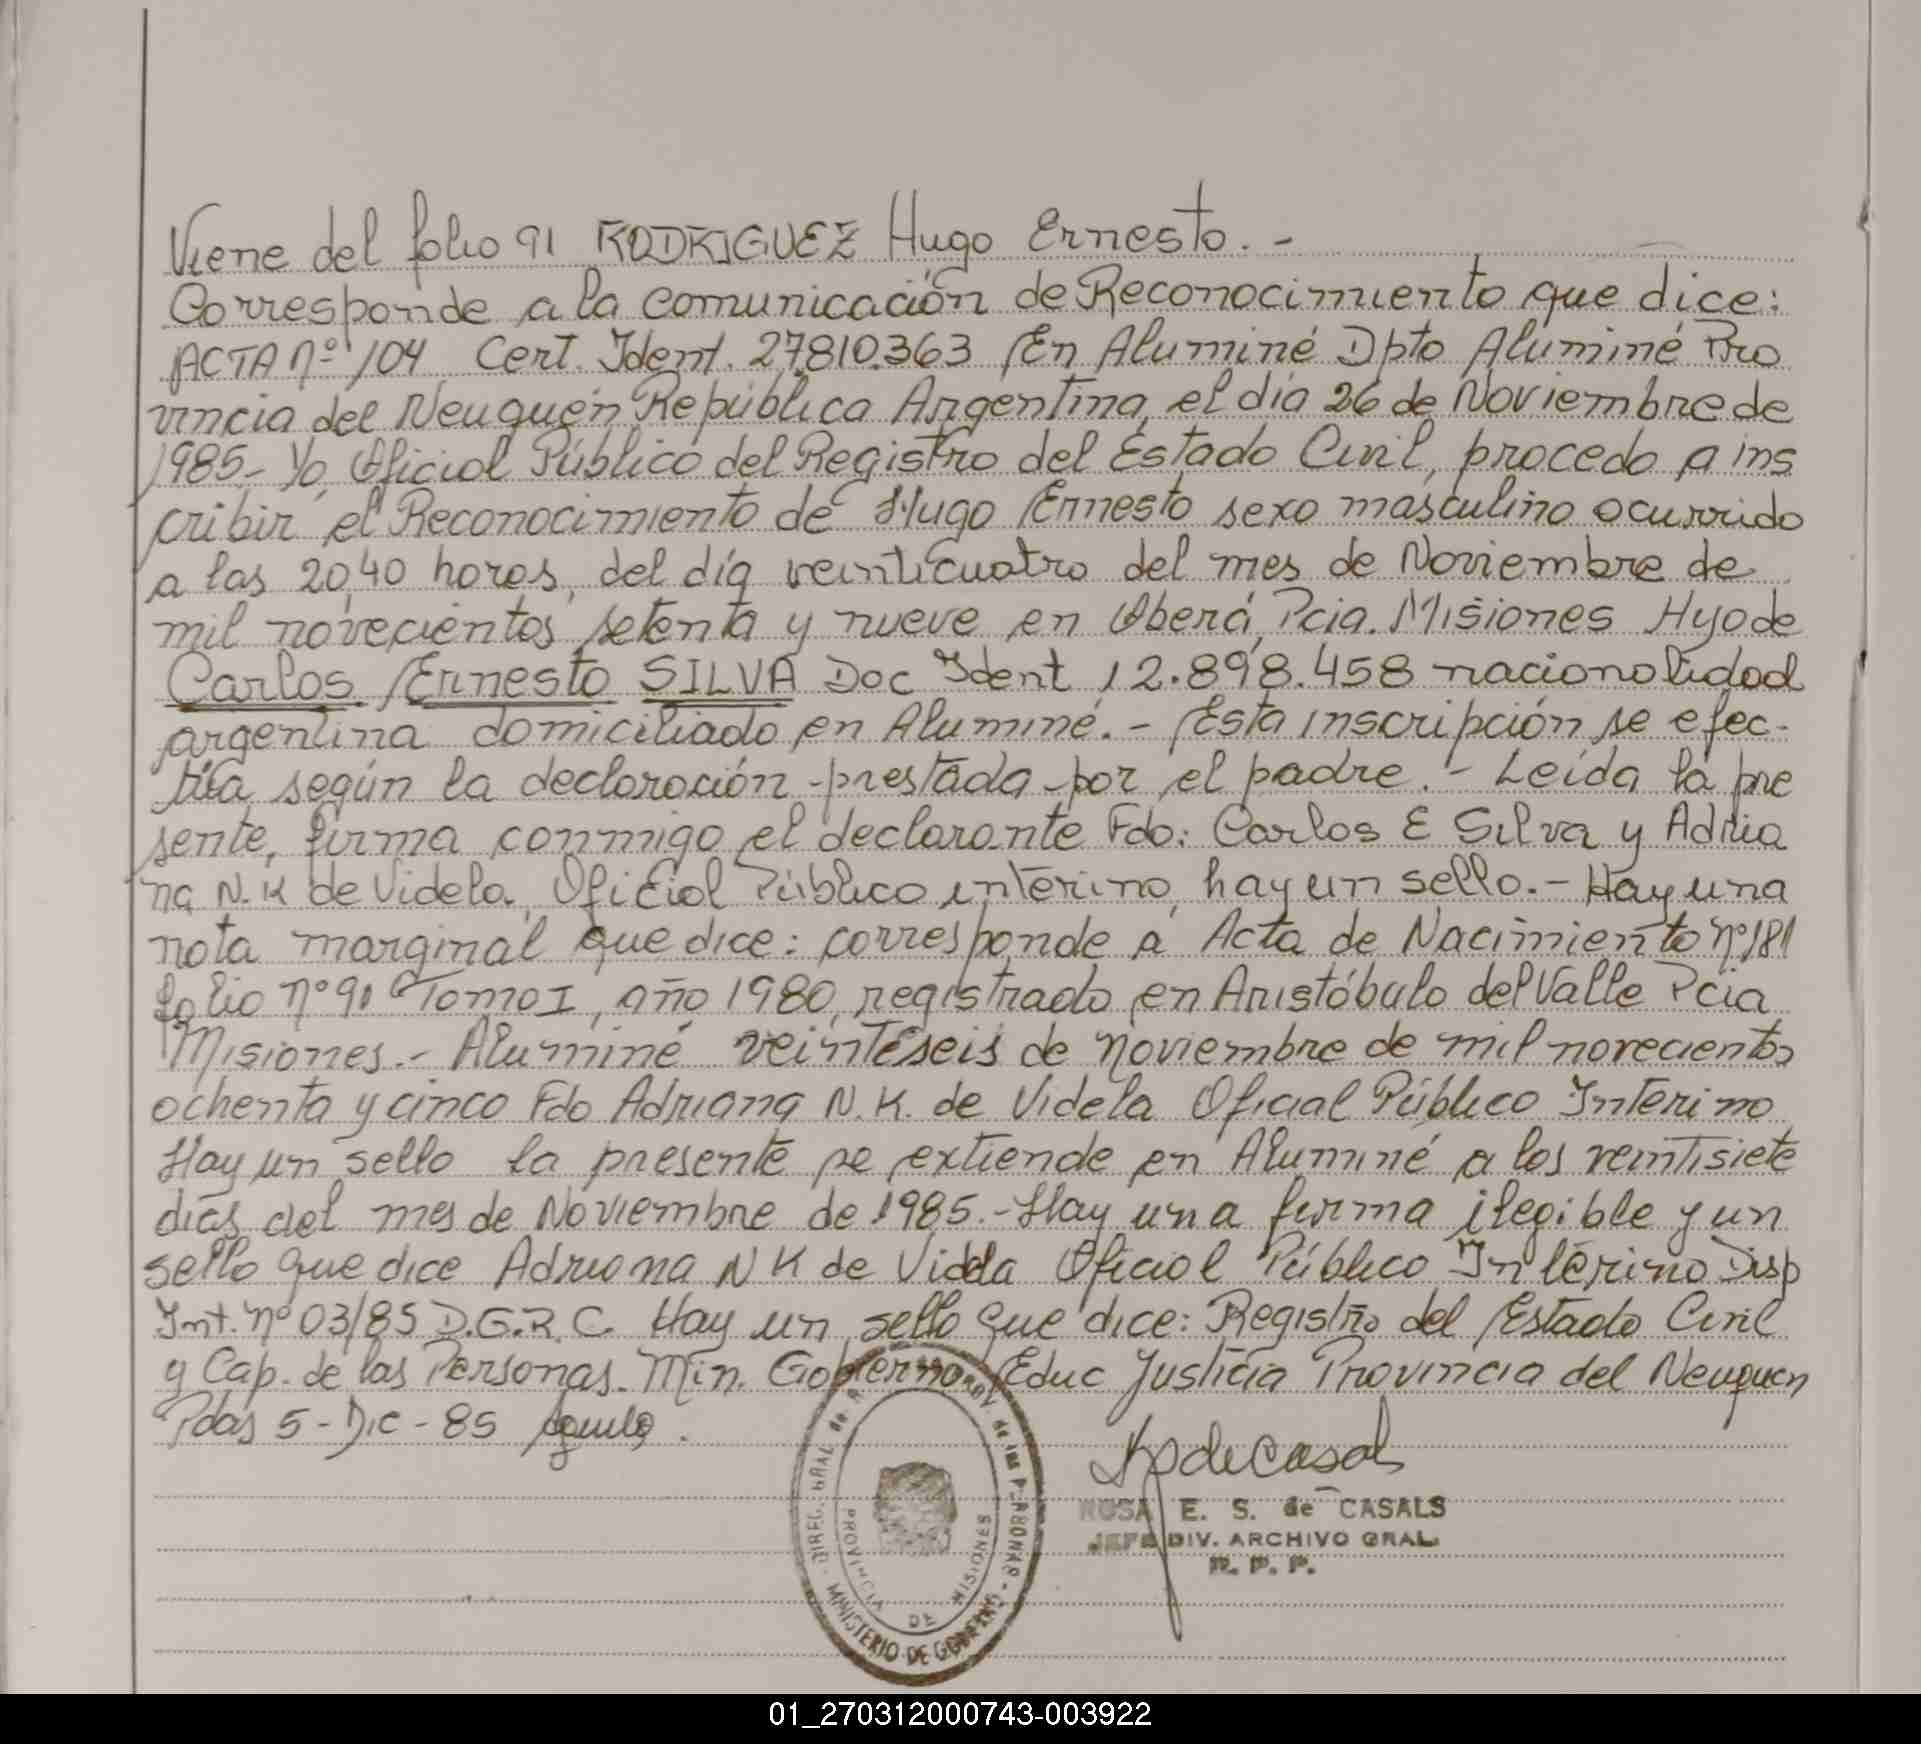 Viene del folio 91 RODRIGUEZ Hugo Ernesto. -
Corresponde a la comunicación de Reconocimiento que dice:
ACTA nº 104 Cert. Ident. 27810.363 En Aluminé Dpto Aluminé Pro
vincia del Neuquén República Argentina, el día 26 de Noviembre de
1985.- Yo, Oficial Público del Registro del Estado Civil, procedo a ins
cribir el Reconocimiento de Hugo Ernesto sexo masculino ocurrido
a las 20,40 horas, del día veinticuatro del mes de Noviembre de
mil novecientos setenta y nueve en Oberá, Pcia. Misiones Hijo de
Carlos Ernesto SILVA Doc Ident 12.898.458 nacionalidad
argentina domiciliado en Aluminé. - Esta inscripción se efec-
túa según la declaración prestada por el padre. - Leída la pre
sente, firma conmigo el declarante Fdo: Carlos E Silva y Adria
na N.K de Videla, Oficial Público interino, hay un sello. - Hay una
nota marginal que dice: corresponde a Acta de Nacimiento nº 181
folio nº 91 Tomo I, año 1980, registrado en Aristóbulo del Valle Pcia
Misiones. - Aluminé veintiseis de noviembre de mil novecientos
ochenta y cinco Fdo Adriana N.K. de Videla Oficial Público Interino
Hay un sello la presente se extiende en Aluminé a los veintisiete
días del mes de Noviembre de 1985. - Hay una firma ilegible y un
sello que dice Adriana N K de Videla Oficial Público Interino Disp
Int. nº 03/85 D.G.R.C. Hay un sello que dice: Registro del Estado Civil
y Cap. de las Personas. Min. Gobierno Educ Justicia Provincia del Neuquen
Pdas 5 - Dic - 85
ROSA E. S. de CASALS
JEFE DIV. ARCHIVO GRAL.
R. P. P.
PROVINCIA DE MISIONES
MINISTERIO DE GOBIERNO
01_270312000743-003922